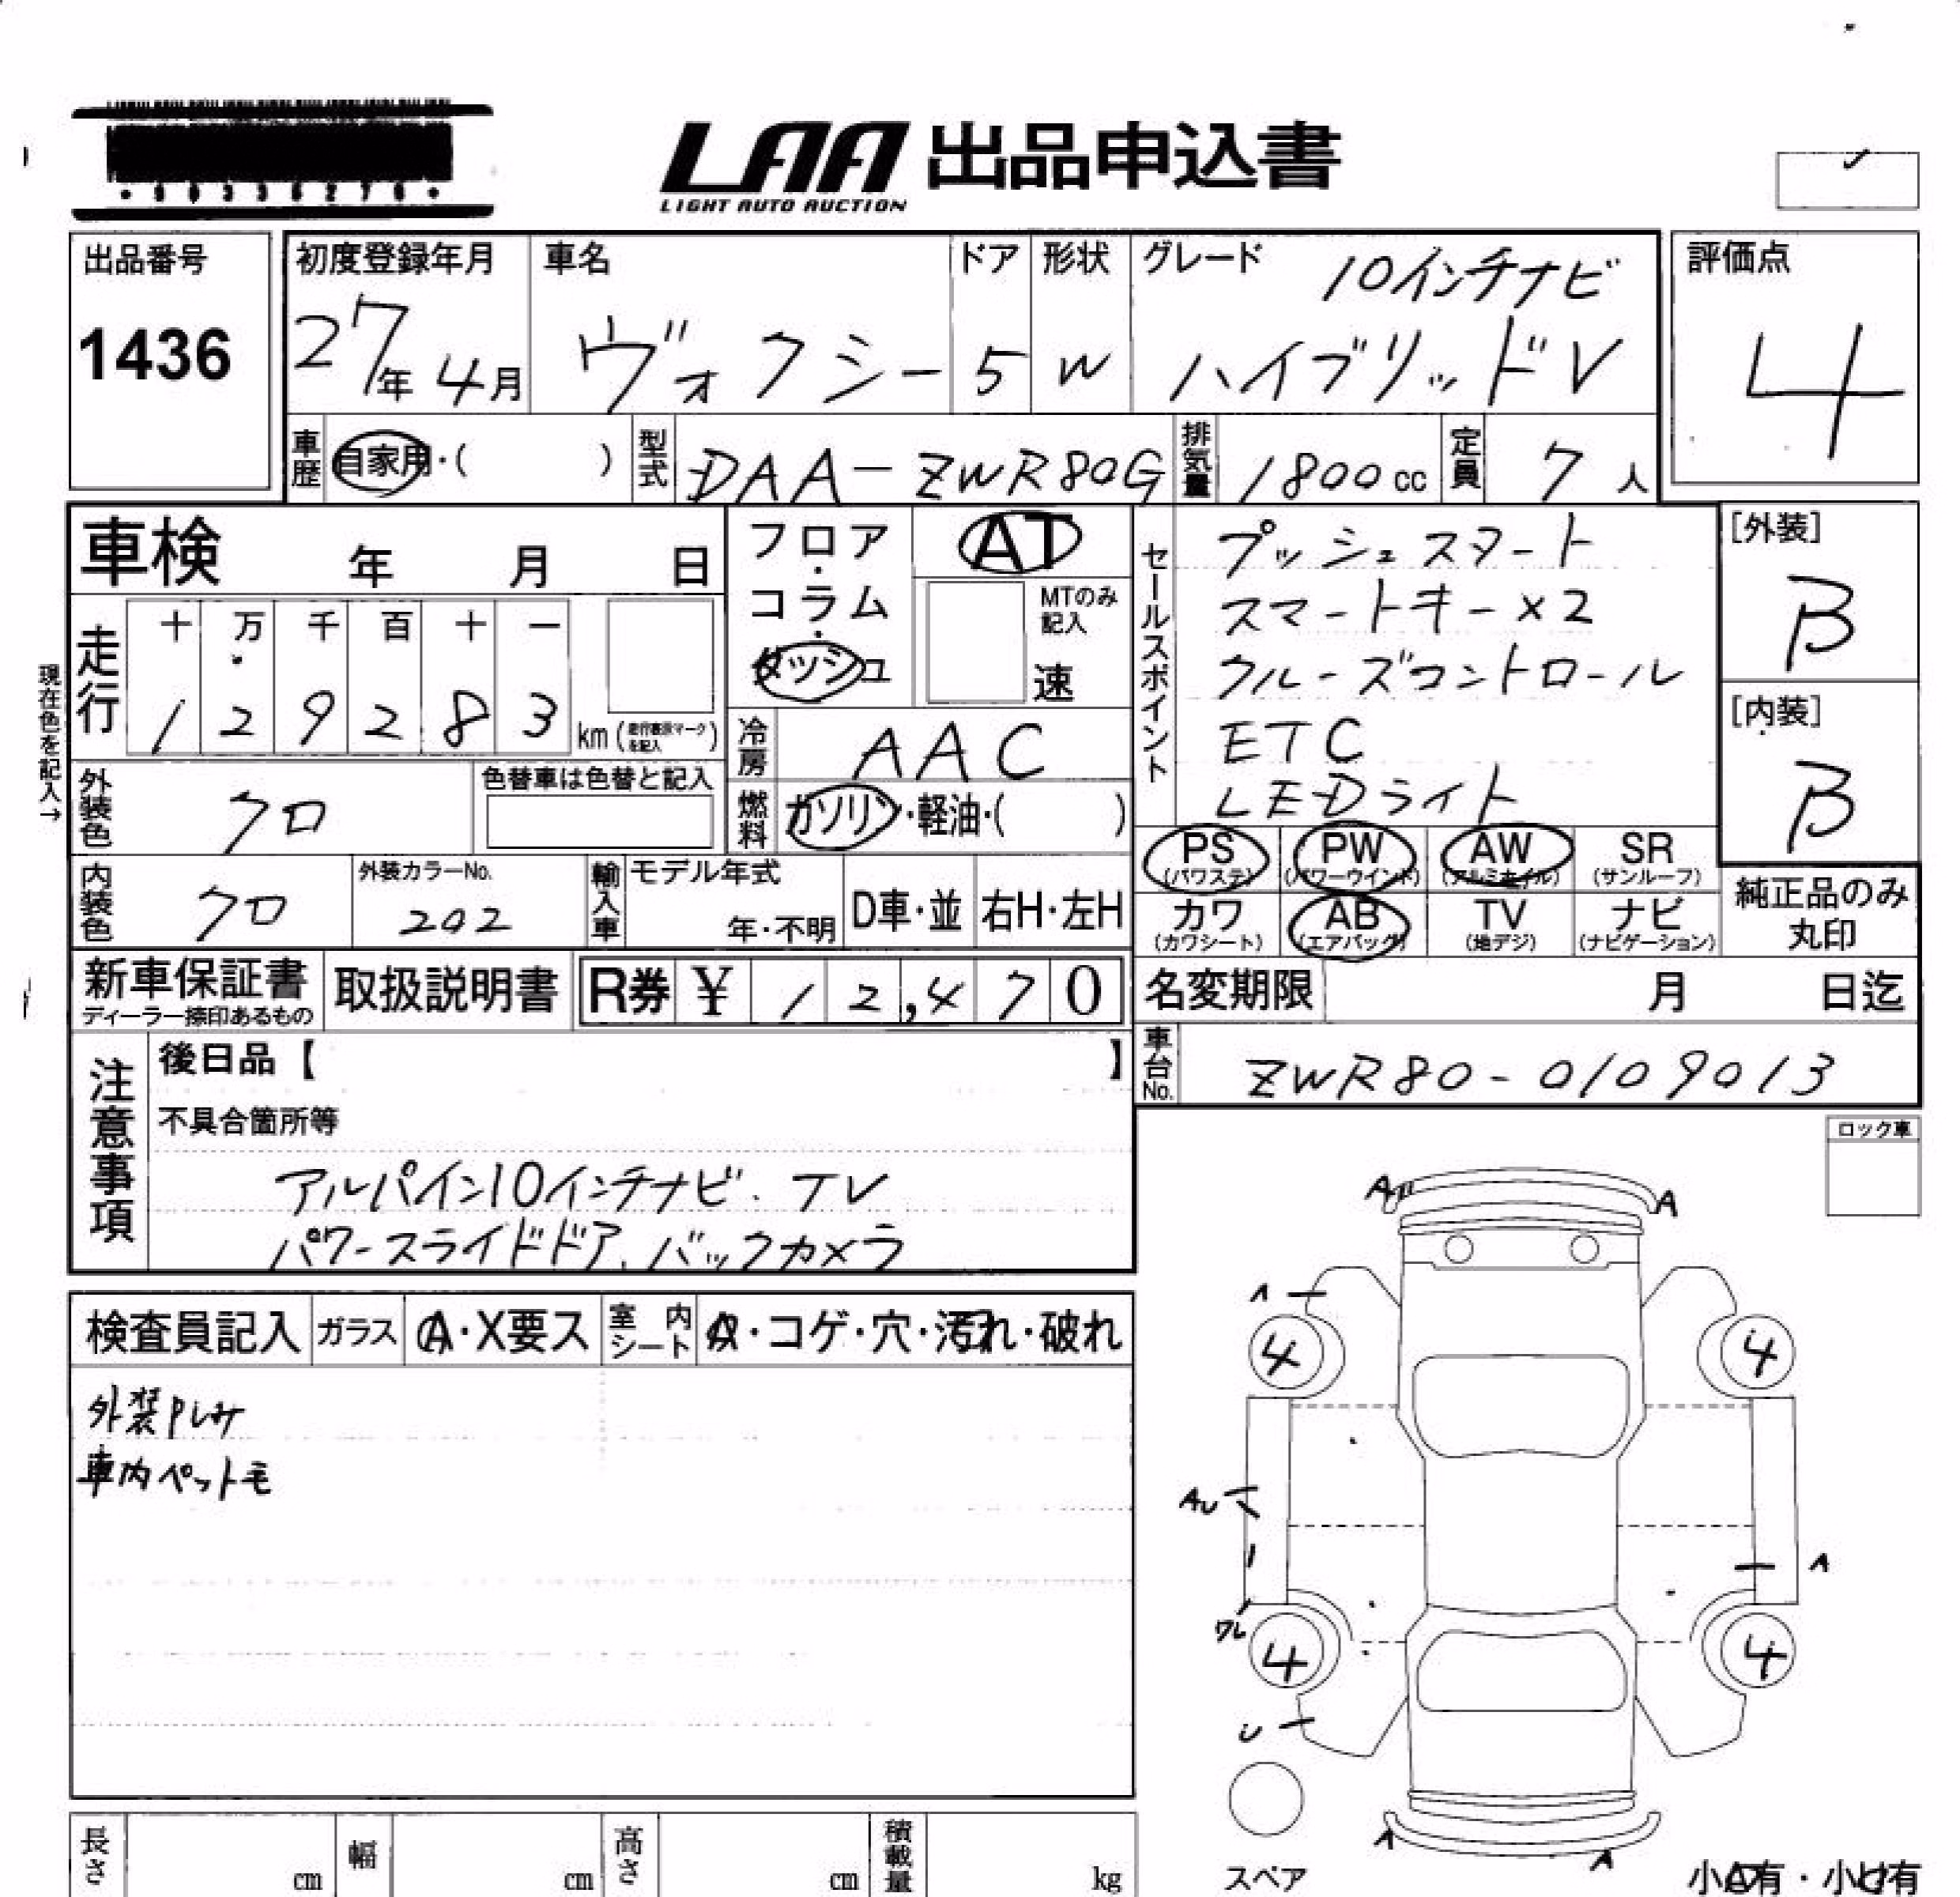 LAA 出品申込書
LIGHT AUTO AUCTION
出品番号
1436
初度登録年月
27年 4月
車名
ヴォクシー
ドア
5
形状
W
グレード
10インチナビ
ハイブリッドV
評価点
4
車歴
自家用・( )
型式
DAA-ZWR80G
排気量
1800cc
定員
7人
車検 年 月 日
走行
十 万 千 百 十 一
1 2 9 2 8 3 km
現在色を記入→
外装色
クロ
色替車は色替と記入
内装色
クロ
外装カラーNo.
202
フロア・コラム・ダッシュ
AT
MTのみ記入
速
冷房
AAC
燃料
ガソリン・軽油・( )
輸入車
モデル年式
年・不明
D車・並
右H・左H
セールスポイント
プッシュスタート
スマートキー×2
クルーズコントロール
ETC
LEDライト
[外装]
B
[内装]
B
PS (パワステ)
PW (パワーウインド)
AW (アルミホイル)
SR (サンルーフ)
カワ (カワシート)
AB (エアバッグ)
TV (地デジ)
ナビ (ナビゲーション)
純正品のみ
丸印
新車保証書
ディーラー捺印あるもの
取扱説明書
R券 ¥ 12,470
名変期限 月 日迄
車台No.
ZWR80-0109013
注意事項
後日品【 】
不具合箇所等
アルパイン10インチナビ. TV
パワースライドドア. バックカメラ
ロック車
検査員記入
ガラス
A・X要ス
室内シート
・コゲ・穴・汚れ・破れ
外装
車内ペット毛
A
A
A
4
4
AU
A
ワレ
4
4
U
A
A
スペア
小A有・小U有
長さ cm
幅 cm
高さ cm
積載量 kg